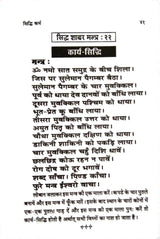 सिद्धि कार्य २१
सिद्ध शाबर मन्त्र : २२
कार्य-सिद्धि
मन्त्र :
ॐ नमो सात समुद्र के बीच शिला।
जिस पर सुलेमान पैगम्बर बैठा।
सुलेमान पैगम्बर के चार मुवक्किल।
पूर्व को धाया देव दानवों को बाँधि लाया।
दूसरा मुवक्किल पश्चिम को धाया।
भूत-प्रेत कूं बाँधि लाया।
तीसरा मुवक्किल उत्तर को धाया।
अयुत पितृ को बाँधि लाया।
चौथा मुवक्किल दक्षिण को धाया।
डाकिनी शाकिनी को पकड़ि लाया।
चार मुवक्किल चहुँ दिशि धावें।
छलछिद्र कोऊ रहन न पावें।
रोग दोष को दूर भगावें।
शब्द साँचा। पिण्ड काँचा।
फुरे मन्त्र ईश्वरो वाचा।